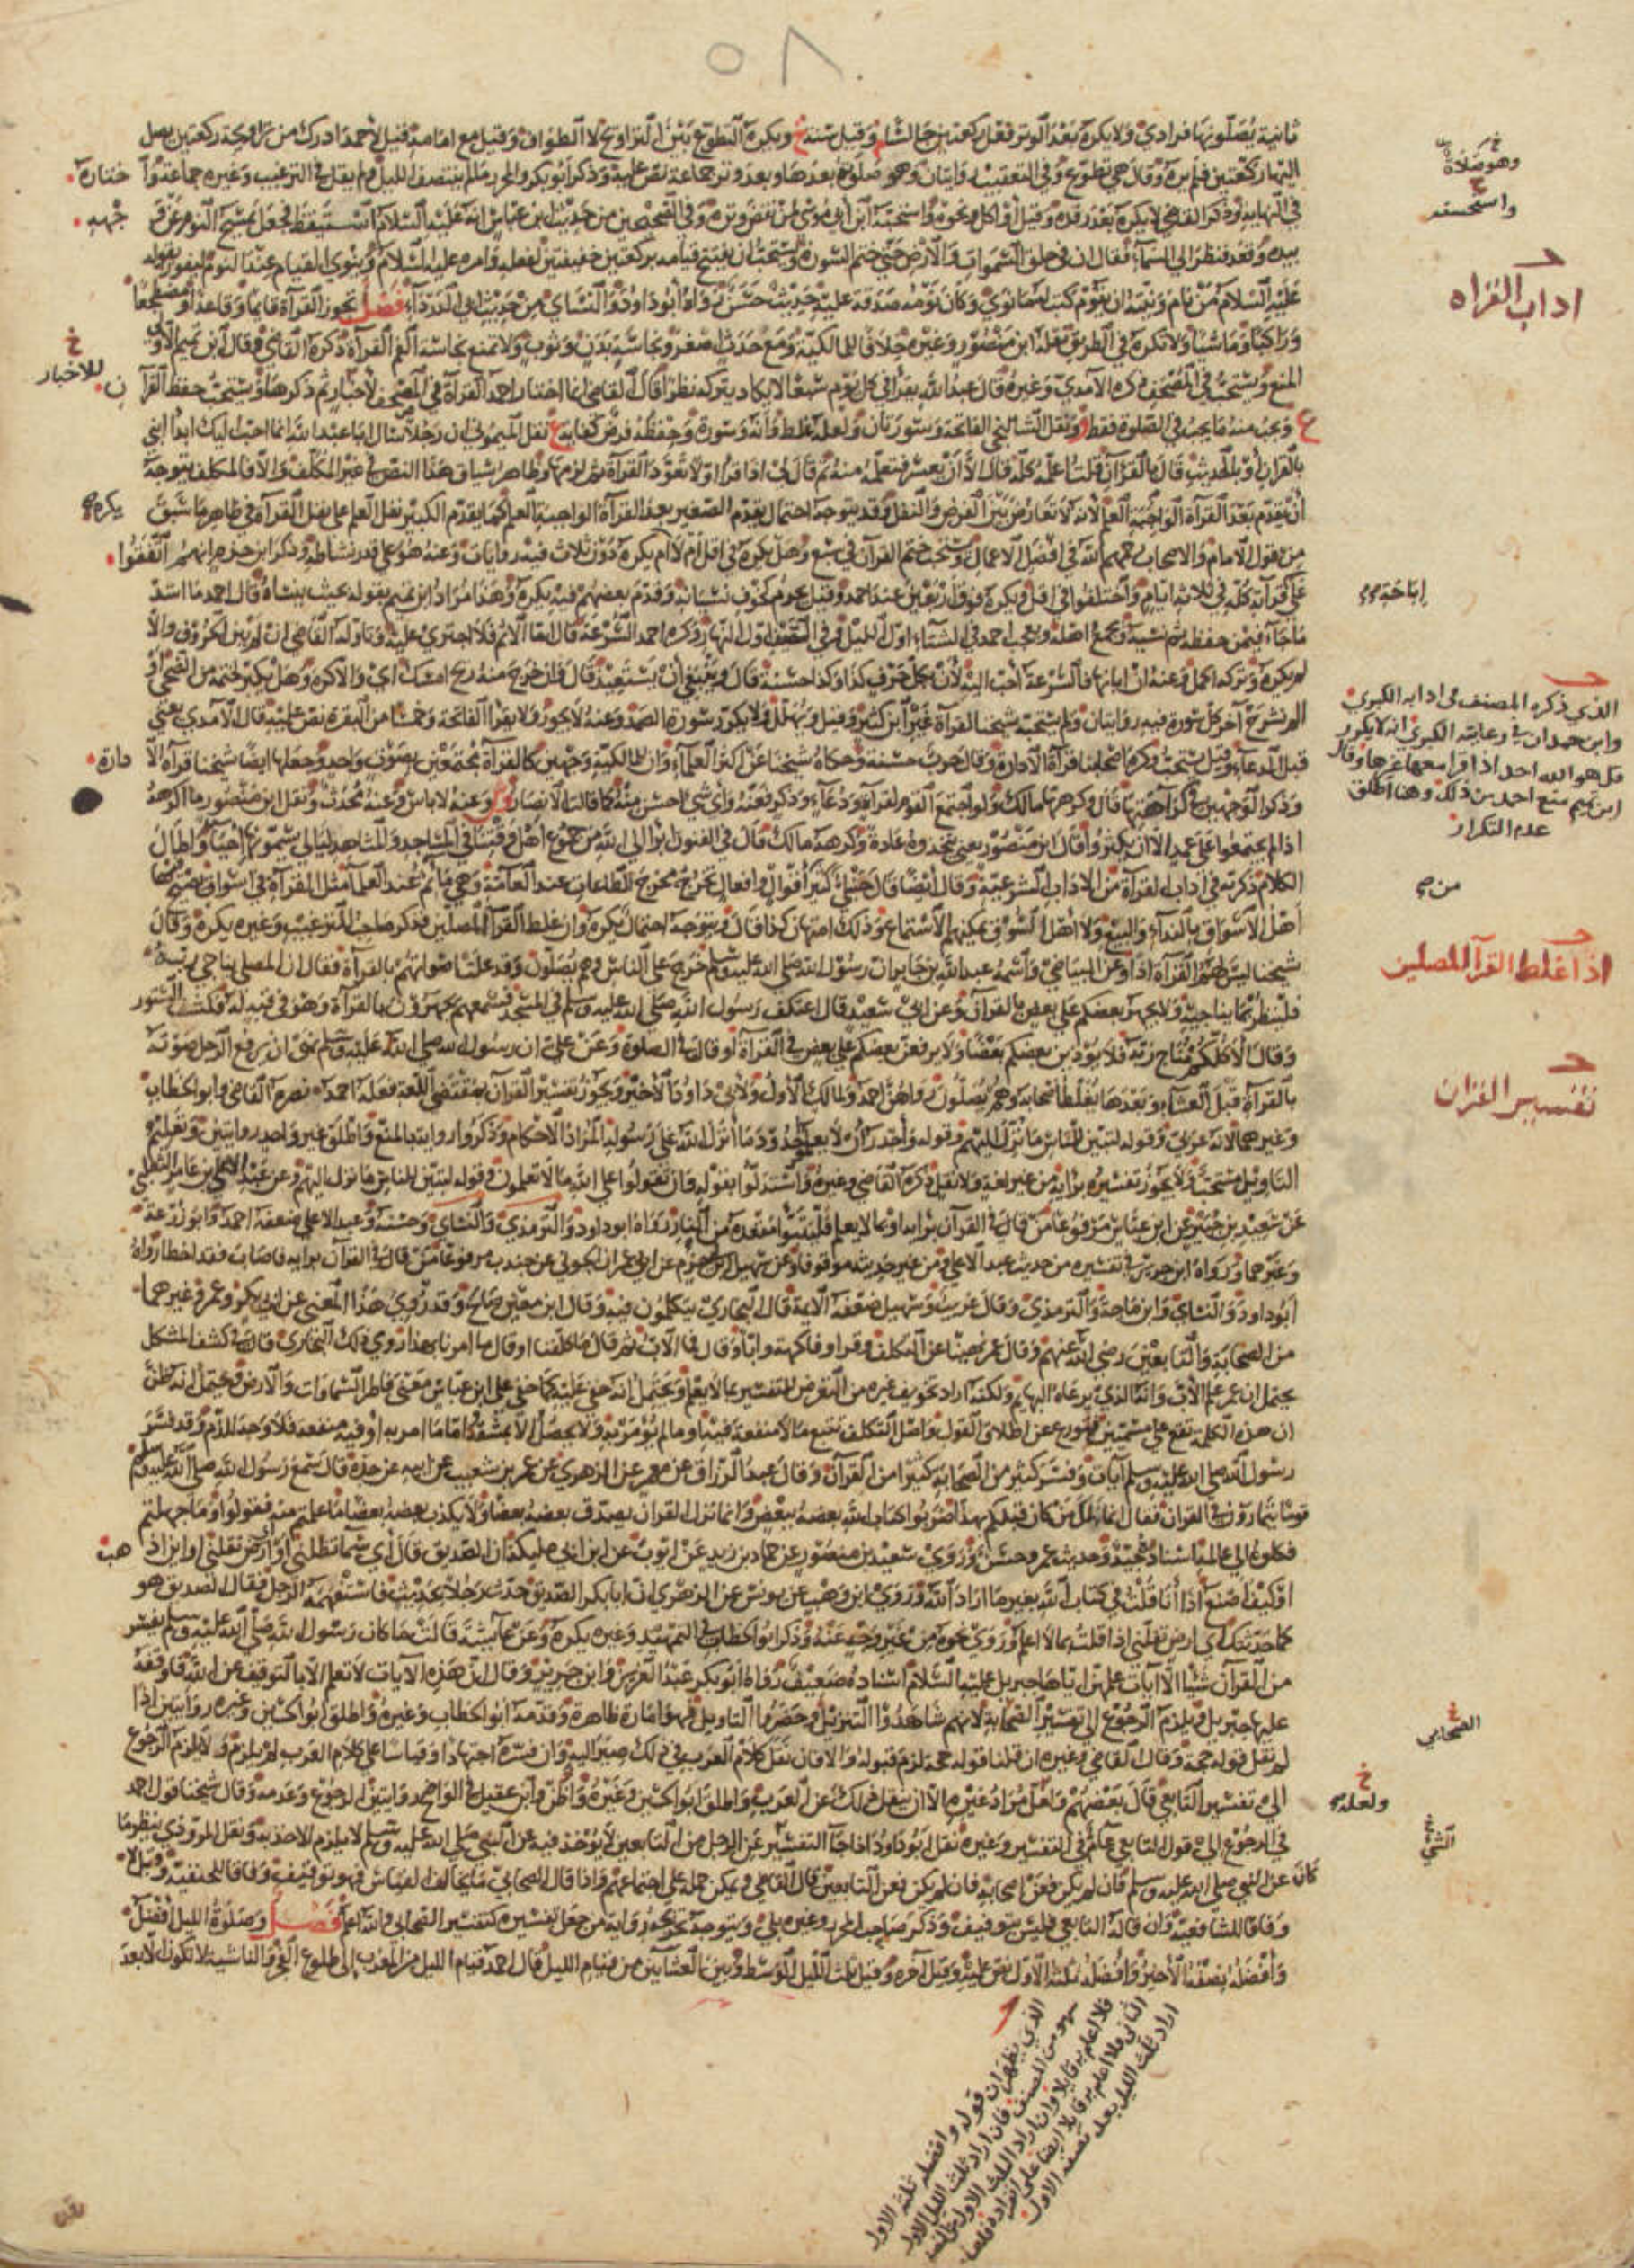 ٥٨
ثانية يصلونها فرادي ولا يكره بعد الوتر فعل ركعتين جالسا وقيل سنة ويكره التطوع بين التراويح لا الطواف وقيل مع امامه قيل لأحمد ادرك من تراويحه ركعتين يصل
اليها ركعتين فلم يره وقال هي تطوع وفي التعقيب روايتان وهو صلوته بعدها وبعد وتر جماعة نص عليه وذكر ابو بكر والمجد ما لم ينتصف الليل ولم يقل في الترغيب وغيره جماعة واختاره
في النهاية وذكر القاضي لا يكره بعد رقدة وقيل او اكل ونحوه واستحبه ابن ابي موسى لمن نقض وتره وفي الصحيحين من حديث ابن عباس انه عليه السلام استيقظ فجعل يمسح النوم عن وجهه
بيده وقعد فنظر الى السماء فقال ان في خلق السموات والارض حتى ختم السورة ويستحب ان يفتتح قيامه بركعتين خفيفتين لفعله وامره عليه السلام وينوي القيام عند النوم ليفوز بقوله
عليه السلام من نام ونيته ان يقوم كتب له ما نوى وكان نومه صدقة عليه حديث حسن رواه ابو داود والنسائ من حديث ابي الدرداء فصل تجوز القراة قايما وقاعدا ومضطجعا
وراكبا وماشيا ولا تكره في الطريق نقله ابن منصور وغيره خلافا للمالكية ومع حدث اصغر ونجاسة بدن وثوب ولا تمنع نجاسة الفم القراة ذكره القاضي وقال ابن تميم الاولى
المنع ويستحب في المصحف ذكره الآمدي وغيره قال عبد الله يقرا في كل يوم سبعا لا يكاد يتركه نظرا قال القاضي انما اختار احمد القراة في المصحف لأخبار ثم ذكرها ويستحب حفظ القرآن
ويجب منه ما يجب في الصلوة فقط ونقل الشالنجي الفاتحة وسورتان ولعله غلط وانه وسورة وحفظه فرض كفاية نقل الميموني ان رجلا سال ابا عبد الله انما احب اليك ابدا ابني
بالقرآن او بالحديث قال بالقرآن قلت اعلمه كله قال الا ان يعسر فتعلمه منه ثم قال لي اذا قرا اولا تعود القراة ثم لزمها وظاهر سياق هذا النص في غير المكلف والا فالمكلف يتوجه
ان يقدم بعد القراة الواجبة العلم لانه لا تعارض بين الفرض والنفل وقد يتوجه احتمال يقدم الصغير بعد القراة الواجبة العلم كما يقدم الكبير نفل العلم على نفل القراة في ظاهر ما سبق
من قول الامام والاصحاب رحمهم الله في افضل الاعمال ويستحب ختم القرآن في سبع وهل يكره في اقل ام لا ام يكره دون ثلاث فيه روايات وعنه هو على قدر نشاطه وذكر ابن حزم انهم اتفقوا
على قرآته كله في ثلاثة ايام واختلفوا في اقل ويكره فوق اربعين عند احمد وقيل يحرم لخوف نسيانه وقدم بعضهم فيه يكره وهذا مراد ابن تميم بقوله بحيث ينساه قال احمد ما اشد
ما جاء فيمن حفظه ثم نسيه ويجمع اهله ويعجب احمد في الشتاء اول الليل وفي الصيف اول النهار وكره احمد السرعة قال اما الاثم فلا اجترئ عليه وتاوله القاضي ان لم يبن الحروف والا
لم يكره وتركه اكمل وعنه ان ابانها فالسرعة احب اليه لأن بكل حرف كذا وكذا حسنة قال وينبغي ان يستعيذ قال فان خرج منه ريح امسك اي والا كره وهل يكبر لختمه من الضحى او
الم نشرح آخر كل سورة فيه روايتان ولم يستحبه شيخنا لقراة غير ابن كثير وقيل ويهلل ولا يكرر سورة الصمد وعنه لا يجوز ولا يقرا الفاتحة وخمسا من البقرة نص عليه قال الآمدي يعني
قبل الدعاء وقيل يستحب وكره اصحابنا قراة الادارة وقال حرب حسنة وحكاه شيخنا عن اكثر العلماء وان للمالكية وجهين كالقراة مجتمعين بصوت واحد وجعلها ايضا شيخنا قراة الادارة
وذكروا الوجهين في كراهتها قال وكرهها مالك ولو اجتمع القوم لقراة ودعاء وذكر فعنه واي شئ احسن منه كما قالت الانصار وعنه لا باس وعنه محدث ونقل ابن منصور ما اكرهه
اذا لم يجتمعوا على عمد الا ان يكثروا قال ابن منصور يعني يتخذوه عادة وكرهه مالك قال في الفنون ابرا الى الله من جموع اهل وقتنا في المساجد والمشاهد ليالي يسمونها احياء واطال
الكلام ذكرته في آداب القراة من الاداب الشرعية وقال ايضا قال حنبل كثير اقوال وافعال تخرج مخرج الطاعات عند العامة وهي مآثم عند العلماء مثل القراة في اسواق يصيح فيها
اهل الاسواق بالنداء والبيع ولا اهل السوق يمكنهم الاستماع وذلك امتهان كذا قال ويتوجه احتمال يكره وان غلط القرآ المصلين فذكر صاحب الترغيب وغيره يكره وقال
شيخنا ليس لهم القراة اذا وعن البياضي واسمه عبد الله بن جابر ان رسول الله صلى الله عليه وسلم خرج على الناس وهم يصلون وقد علت اصواتهم بالقراة فقال ان المصلي يناجي ربه
فلينظر بما يناجيه ولا يجهر بعضكم على بعض بالقرآن وعن ابي سعيد قال اعتكف رسول الله صلى الله عليه وسلم في المسجد فسمعهم يجهرون بالقراة وهو في قبة له فكشف الستور
وقال الا كلكم مناج ربه فلا يؤذين بعضكم بعضا ولا يرفعن بعضكم على بعض في القراة او قال في الصلوة وعن علي ان رسول الله صلى الله عليه وسلم نهى ان يرفع الرجل صوته
بالقراة قبل العشاء وبعدها يغلط اصحابه وهم يصلون رواهن احمد ولمالك الأول ولأبي داود الأخير ويجوز تفسير القرآن بمقتضى اللغة فعله احمد نصره القاضي وابو الخطاب
وغيرهما لانه عربي وقوله لتبين للناس ما نزل اليهم وقوله واجدر ان لا يعلموا حدود ما انزل الله على رسوله المراد الاحكام وذكروا رواية بالمنع واطلق غير واحد روايتين وتعليم
التاويل مستحب ولا يجوز تفسيره برايه من غير لغة ولا نقل ذكره القاضي وغيره واستدلوا بقوله وان تقولوا على الله ما لا تعلمون وقوله لتبين للناس ما نزل اليهم وعن عبد الاعلى بن عامر الثعلبي
عن سعيد بن جبير عن ابن عباس مرفوعا من قال في القرآن برايه او بما لا يعلم فليتبوا مقعده من النار رواه ابو داود والترمذي والنسائ وحسنه وعبد الاعلى ضعفه احمد وابو زرعة
وغيرهما ورواه ابن جرير في تفسيره من حديث عبد الاعلى ومن غير حديثه موقوفا وعن سهيل ابن حزم عن ابي عمران الجوني عن جندب مرفوعا من قال في القرآن برايه فاصاب فقد اخطا رواه
ابو داود والنسائ وابن ماجة والترمذي وقال غريب وسهيل ضعفه الائمة قال البخاري يتكلمون فيه وقال ابن معين صالح وقد روي هذا المعنى عن ابي بكر وعمر وغيرهما
من الصحابة والتابعين رضي الله عنهم وقال عمر نهينا عن التكلف وقرا وفاكهة وابا وقال فما الاب ثم قال ما كلفنا او قال ما امرنا بهذا روى ذلك البخاري وقال في كشف المشكل
يحتمل ان عمر علم الاب وانه الذي يرعاه البهايم ولكنه اراد تخويف غيره من التعرض للتفسير بما لا يعلم ويحتمل انه خفي عليه كما خفي على ابن عباس معنى فاطر السماوات والارض ويحتمل انه ظن
ان هذه الكلمة تقع على مسميين فتورع عن اطلاق القول واصل التكلف تتبع ما لا منفعة فيه او ما لم يؤمر به ولا يحصل الا بمشقة فاما ما امر به او فيه منفعة فلا وجه للذم وقد فسر
رسول الله صلى الله عليه وسلم آيات وفسر كثير من الصحابة كثيرا من القرآن وقال عبد الرزاق عن معمر عن الزهري عن عمر بن شعيب عن ابيه عن جده قال سمع رسول الله صلى الله عليه وسلم
قوما يتمارون في القرآن فقال انما هلك من كان قبلكم بهذا ضربوا كتاب الله بعضه ببعض وانما نزل القرآن يصدق بعضه بعضا ولا يكذب بعضه بعضا ما علمتم منه فقولوا وما جهلتم
فكلوه الى عالمه اسناده جيد وحديث عمر وحسن وروى سعيد بن منصور عن حماد بن زيد عن ايوب عن ابن ابي مليكة ان الصديق قال اي سماء تظلني او ارض تقلني او اين اذهب
او كيف اصنع اذا انا قلت في كتاب الله بغير ما اراد الله وروى ابن وهب عن يونس عن الزهري ان ابا بكر الصديق حدث رجلا بحديث فاستفهمه الرجل فقال الصديق هو
كما حدثتك اي ارض تقلني اذا قلت بما لا اعلم وروي نحوه من غير وجه عنه وذكر ابو الخطاب في التمهيد وغيره يكره وعن عائشة قالت ما كان رسول الله صلى الله عليه وسلم يفسر
من القرآن شيئا الا آيات علمهن اياها جبريل عليه السلام اسناده ضعيف رواه ابو بكر عبد العزيز وابن جرير وقال ان هذه الآيات لا تعلم الا بالتوقيف عن الله فاوقفه
عليها جبريل ويلزم الرجوع الى تفسير الصحابة لانهم شاهدوا التنزيل وحضروا التاويل فهو امارة ظاهرة وقدمه ابو الخطاب وغيره واطلق ابو الحسين وغيره روايتين اذا
لم نقل قوله حجة وقال القاضي وغيره ان قلنا قوله حجة لزم قبوله والا فان نقل كلام العرب في ذلك صير اليه وان فسره اجتهادا وقياسا على كلام العرب لم يلزم ولا يلزم الرجوع
الى تفسير التابعي قال بعضهم ولعل مراد غيره الا ان ينقل ذلك عن العرب واطلق ابو الحسين وغيره واظن وابن عقيل في الواضح روايتين الرجوع وعدمه وقال شيخنا قول احمد
في الرجوع الى قول التابعي عام في التفسير وغيره نقل ابو داود اذا جاء التفسير عن الرجل من التابعين لا يؤخذ فيه عن النبي صلى الله عليه وسلم لا يلزم الاخذ به ونقل المروذي ينظر ما
كان عن النبي صلى الله عليه وسلم فان لم يكن فعن اصحابه فان لم يكن فعن التابعين قال القاضي ويمكن حمله على اجتماعهم واذا قال الصحابي ما يخالف القياس فهو توقيف وفاقا للحنفية وقيل لا
وفاقا للشافعية وان قاله التابعي فليس بتوقيف وذكر صاحب المحرر وغيره بلى ويتوجه تخريج رواية من جعل تفسيره كتفسير الصحابي والله اعلم فصل وصلوة الليل افضل
وافضله نصفه الأخير وافضله ثلثه الأول نص عليه وقيل آخره وقيل ثلث الليل الاوسط وبين العشاءين من قيام الليل قال احمد قيام الليل من المغرب الى طلوع الفجر والناشية لا تكون الا بعد
وهو صلاة
واستحسنه
اداب القراه
للاخبار
يكره
إباحة
الذي ذكره المصنف في ادابه الكبرى
وابن حمدان في رعايته الكبرى انه لا يكرر
قل هو الله احد اذا قرا معها غيرها وقال
ابن تميم منع احمد من ذلك وهنا اطلق
عدم التكرار
من
اذا غلط القرآ المصلين
تفسير القران
الصحابي
ولعله
الشئ
الذي يظهر ان قوله وافضله ثلثه الاول
سهو من المصنف فان اراد ثلث الليل الاول
فلا اعلم به قايلا وان اراد الثلث الاول من النصف
الثاني فلا اعلم به قايلا ايضا على انفراده فلعله
اراد ثلث الليل بعد نصفه الاول